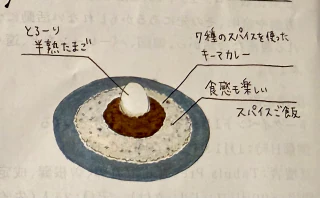 とろーり
半熟たまご
7種のスパイスを使った
キーマカレー
食感も楽しい
スパイスご飯